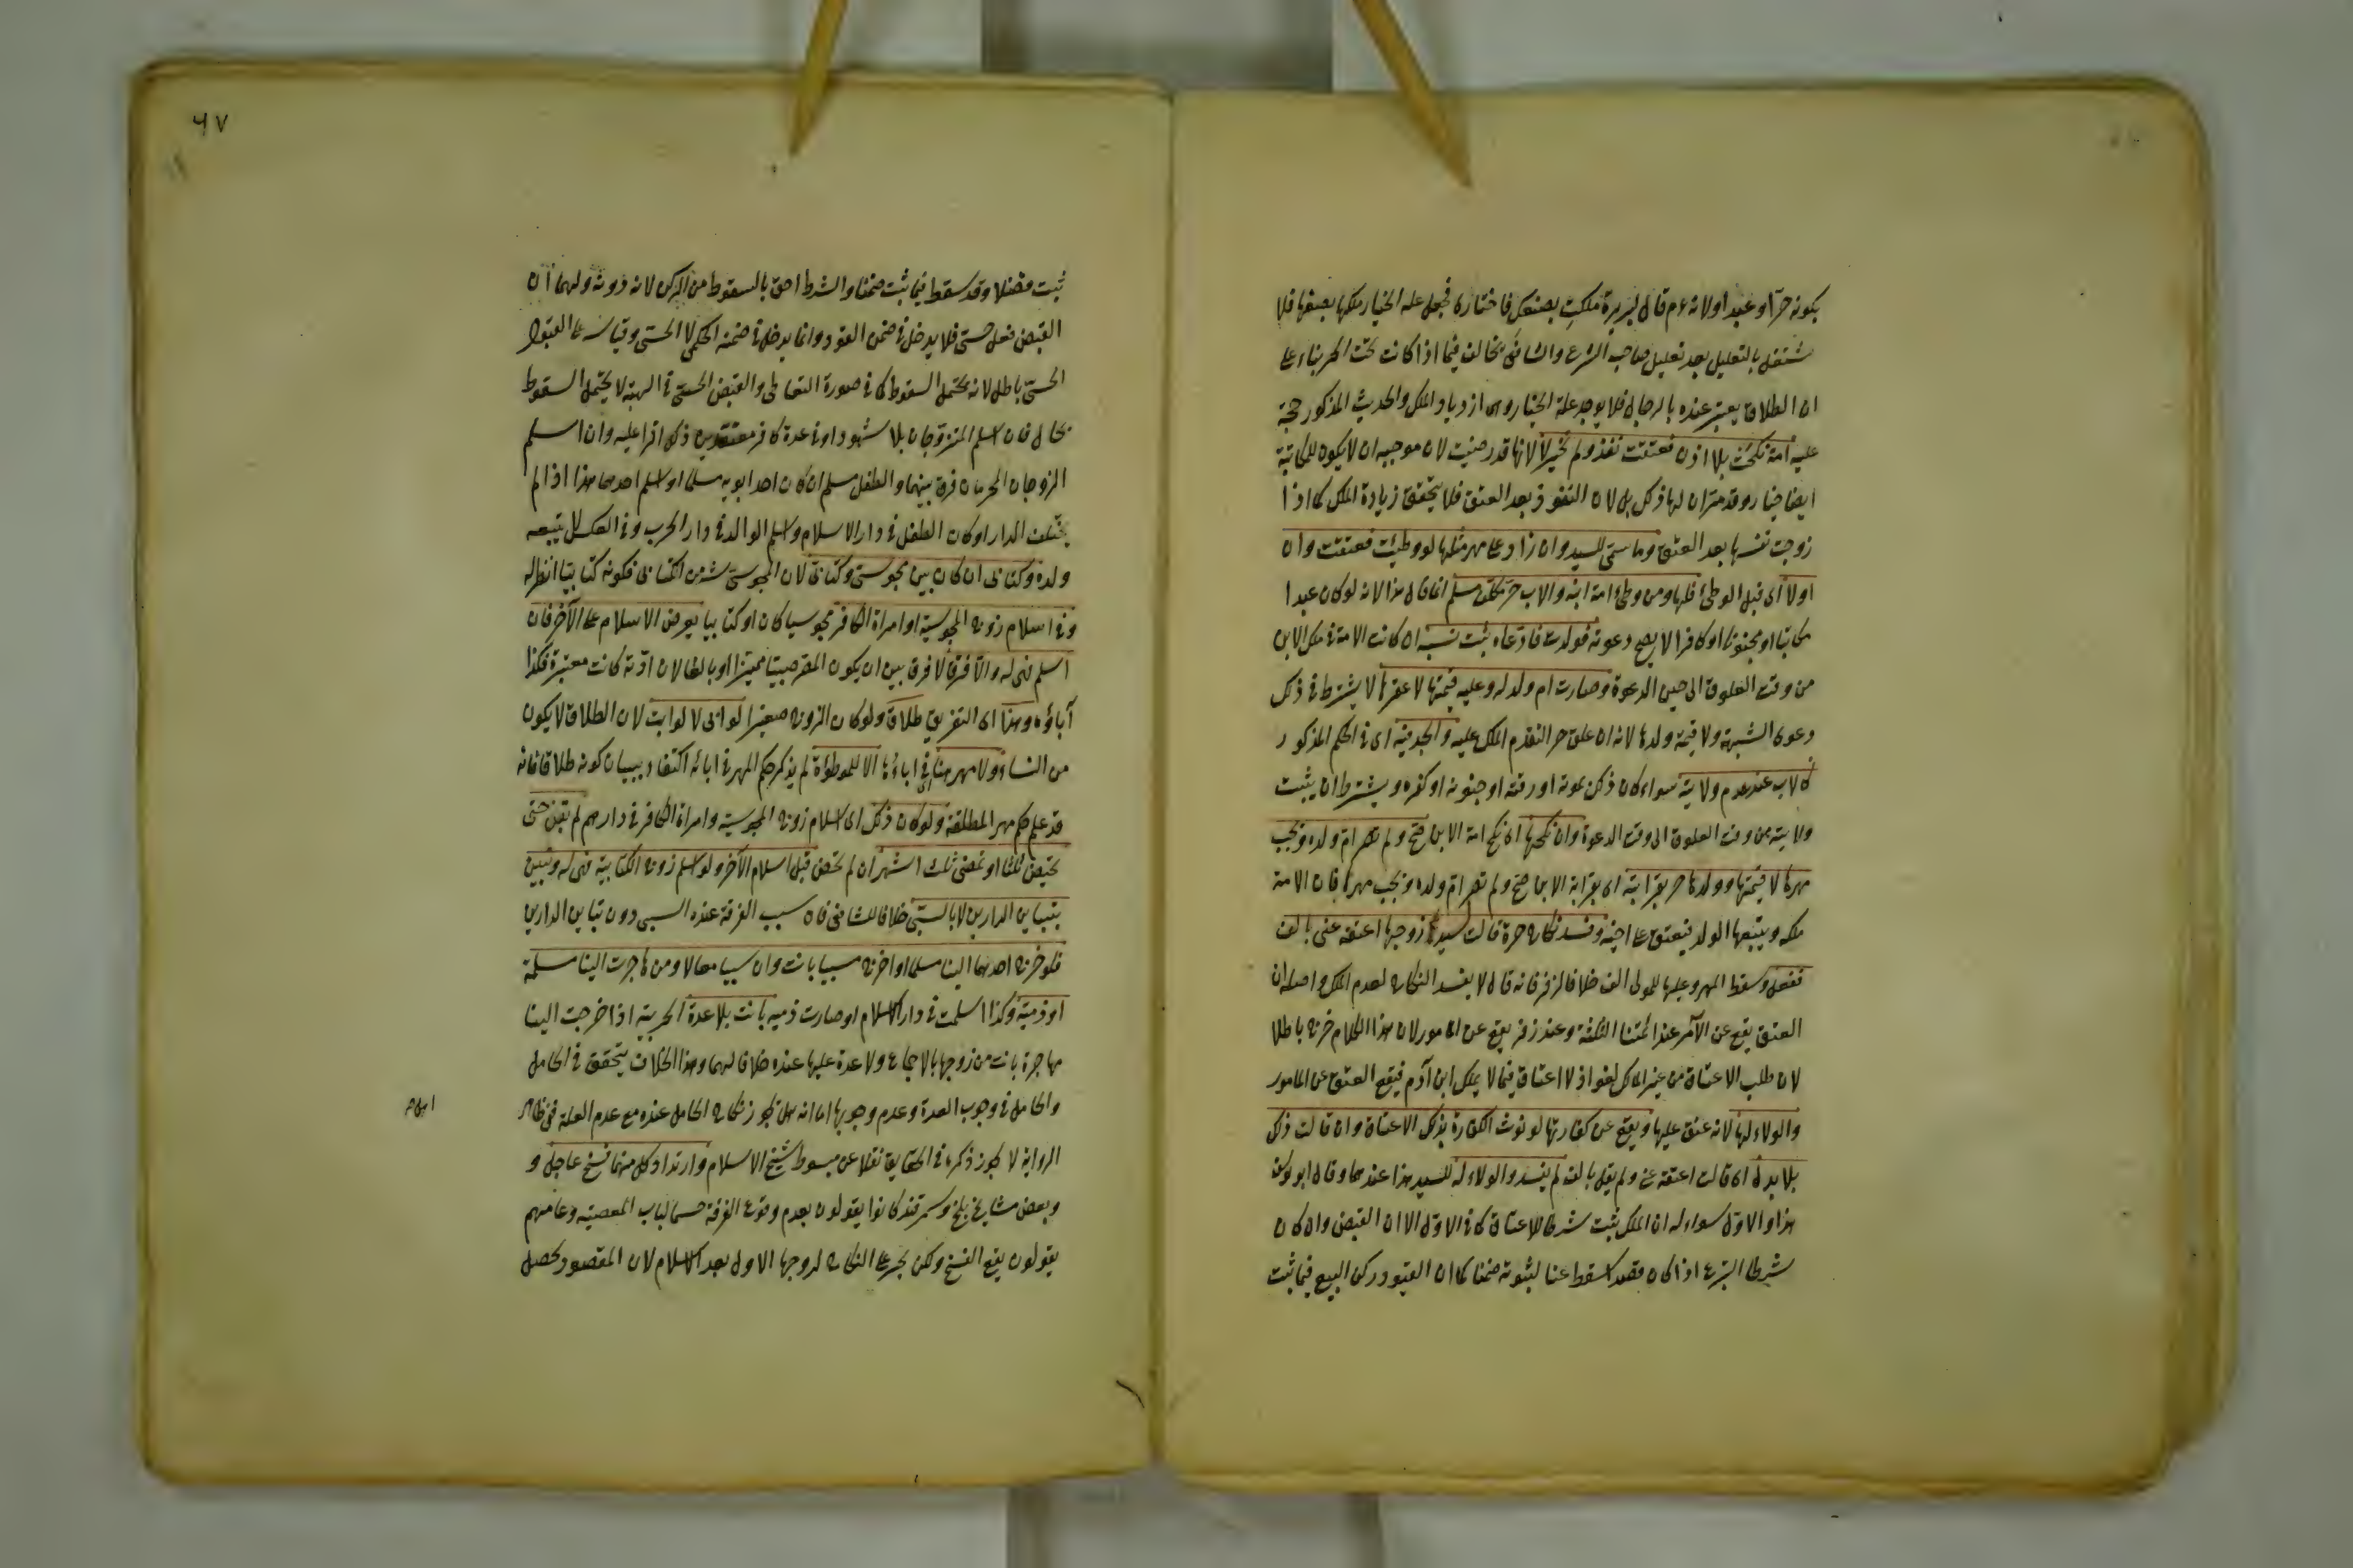 بكونه حرا او عبدا ولانه عم قال لبريرة ملكت بضعك فاختارى فجعل علة الخيار ملكها بضعها فلا
نشتغل بالتعليل بعد تعليل صاحب الشرع والشافعى يخالف فيما اذا كانت تحت الحر بناء على
ان الطلاق يعتبر عنده بالرجال فلا يوجد علة الخيار وهى ازدياد الملك والحديث المذكور حجة
عليه امة نكحت بلا اذن فعتقت نفذ ولم تخير لانها قد رضيت لان موجبه ان لا يكون للمكاتبة
ايضا خيار وقد مر ان لها ذلك بل لان النفوذ بعد العتق فلا يتحقق زيادة الملك كما اذا
زوجت نفسها بعد العتق وما سمى للسيد وان زاد على مهر مثلها لو وطئت فعتقت وان
اولا اى قبل الوطئ فلها ومن وطئ امة ابنه والاب حر مكلف مسلم انما قال هذا لانه لو كان عبدا
مكاتبا او مجنونا او كافرا لا يصح دعوته فولدت فادعاه ثبت نسبه ان كانت الامة فى ملك الابن
من وقت العلوق الى حين الدعوة وصارت ام ولد له وعليه قيمتها لا عقرها لا يشترط فى ذلك
دعوى الشبهة ولا قيمة ولدها لانه ان علق حر التقدم الملك عليه والجد فيه اى فى الحكم المذكور
كالاب عند عدم ولايته سواء كان ذلك بموته او رقه او جنونه او كفره ويشترط ان يثبت
ولايته من وقت العلوق الى وقت الدعوة وان نكحها اى نكح امة الابن صح ولم تصر ام ولده ويجب
مهرها لا قيمتها وولدها حر بقرابته اى بقرابة الابن صح ولم تصر ام ولده ويجب مهرها فان الامة
ملكه ويتبعها الولد فيعتق على اخيه وفسد نكاح حرة قالت لسيد زوجها اعتقه عنى بالف
ففعل وسقط المهر وعليها للمولى الف خلافا لزفر فانه قال لا يفسد النكاح لعدم الملك واصله ان
العتق يقع عن الآمر عند ائمتنا الثلثة وعند زفر يقع عن المامور لان هذا الكلام خرج باطلا
لان طلب الاعتاق من غير المالك لغو اذ لا اعتاق فيما لا يملك ابن آدم فيقع العتق عن المامور
والولاء لها لانه عتق عليها ويقع عن كفارتها لو نوت الكفارة بذلك الاعتاق وان قالت ذلك
بلا بدل اى قالت اعتقه عنى ولم يقل بالف لم يفسد والولاء له للسيد هذا عندهما وقال ابو يوسف
هذا والاول سواء له ان الملك يثبت شرطا للاعتاق كما فى الاول الا ان القبض وان كان
شرطا لشرع اذا كان مقصدا سقط عنا لثبوته ضمنا كما ان القبول ركن البيع فيما ثبت
٦٧
ثبت مفصلا وقد سقط فيما ثبت ضمنا والشرط احق بالسقوط من الركن لانه دونه ولهما ان
القبض فعل حسى فلا يدخل فى ضمن العقود وانما يدخل فى ضمنه الحكمى لا الحسى وقياسه على القبول
الحسى باطل لانه يحتمل السقوط كما فى صورة التعاطى والقبض الحسى فى الهبة لا يحتمل السقوط
بحال فان اسلم المتزوجان بلا شهود او فى عدة كافر معتقدين ذلك اقرا عليه وان اسلم
الزوجان المحرمان فرق بينهما والطفل مسلم ان كان احد ابويه مسلما او اسلم احدهما هذا اذا لم
يختلف الدار او كان الطفل فى دار الاسلام واسلم الوالد فى دار الحرب وفى العكس لا يتبعه
ولده وكتابى ان كان بين مجوسى وكتابى لان المجوسى شر من الكتابى فكونه كتابيا انظر له
وفى اسلام زوج المجوسية او امرأة الكافر مجوسيا كان او كتابيا يعرض الاسلام على الآخر فان
اسلم فهى له والا فرق لا فرق بين ان يكون المقر صبيا مميزا او بالغا لان ردته كانت معتبرة فكذا
آباؤه وهذا اى التفريق طلاق ولو كان الزوج صغيرا لو ابى لا لو ابت لان الطلاق لا يكون
من النساء ولا مهر هنا فى اباؤها الا للموطؤة لم يذكر حكم المهر فى ابائه اكتفاء ببيان كونه طلاقا فانه
قد علم حكم مهر المطلقة ولو كان ذلك اى اسلام زوج المجوسية وامرأة الكافر فى دارهم لم تبن حتى
تحيض ثلثا او تمضى ثلث اشهر ان لم تحض قبل اسلام الآخر ولو اسلم زوج الكتابية فهى له وتبين
بتباين الدارين لا بالسبى خلافا للشافعى فان سبب الفرقة عنده السبى دون تباين الدارين
فلو خرج احدهما الينا مسلما او اخرج مسبيا بانت وان سبيا معا لا ومن هاجرت الينا مسلمة
او ذمية وكذا اسلمت فى دار الاسلام او صارت ذمية بانت بلا عدة الحربية اذا خرجت الينا
مهاجرة بانت من زوجها بالاجماع ولا عدة عليها عنده خلافا لهما وهذا الخلاف يتحقق فى الحامل
والحامل فى وجوب العدة وعدم وجوبها اما انه هل يجوز نكاح الحامل عنده مع عدم العدة ففى ظاهر
الرواية لا يجوز ذكره فى الحقايق نقلا عن مبسوط شيخ الاسلام وارتداد كل منهما فسخ عاجل و
وبعض مشايخ بلخ وسمرقند كانوا يقولون بعدم وقوع الفرقة حسما لباب المعصية وعامتهم
يقولون يقع الفسخ ولكن يجبر على النكاح لزوجها الاول بعد الاسلام لان المقصود يحصل